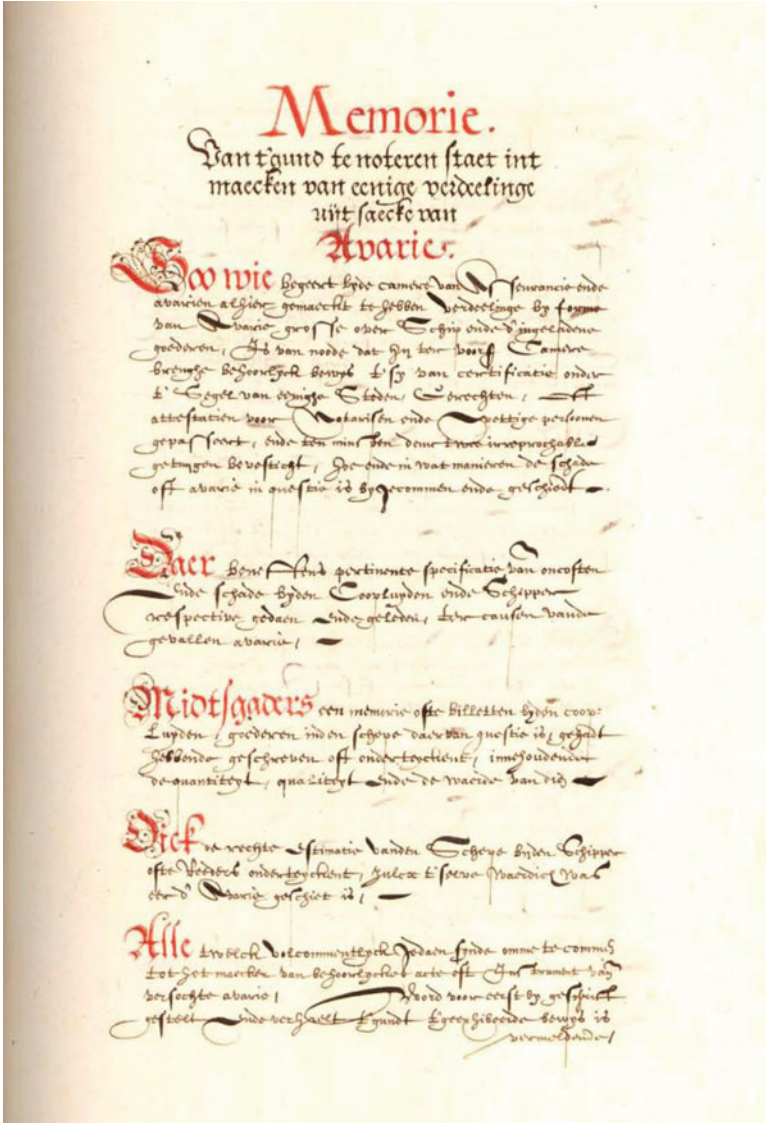 Memorie.
Van t'gund te noteren staet int
maecken van eenige verdeelinge
uijt saecke van
Avarie.
Soo wie begeert byde camere van Asseurancie ende
avarien alhier gemaeckt te hebben verdeelinge by forme
van Avarie grosse over Schip ende d'ingeladene
goederen, Is van noode dat hij ter voors Camere
brenghe behoorlyck bewys t'sy van certificatie onder
t'Segel van eenighe Steden, Gerechten, Off
attestatien voor Notarisen ende Wettige persoonen
gepasseert, ende ten minsten deur twee irreprochable
getuigen bevesticht, hoe ende in wat manieren de schade
off avarie in questie is bygecommen ende geschiedt.
Daer beneffens pertinente specificatie van oncosten
Ende schade byden Coopluyden ende Schipper
respective gedaen Ende geleden, ter causen vande
gevallen avarie,
Midtsgaders een memorie ofte billetten byden coop-
Luyden, goederen inden schepe daervan questie is, gehadt
hebbende geschreven off onderteyckent, innehoudende
de quantiteyt, qualiteyt Ende de waerde van dien
Oijck de rechte Estimatie vanden Schepe byden Schipper
ofte Reeders onderteyckent, sulcx t'selve waerdich was
eer d'Avarie geschiet is,
Alle twelck volcommentlyck gedaen synde omme te commen
tot het maecken van behoorlycke acte oft Instrument van
versochte avarie, Word voor eerst by geschrift
gestelt Ende verhaelt t'gundt t'geexhibeerde bewys is
vermeldende,